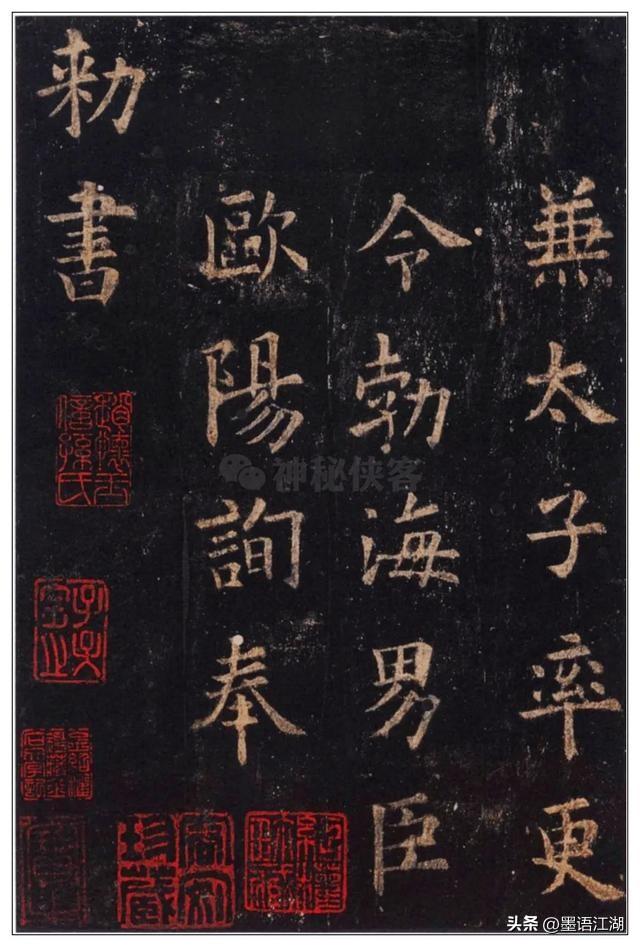 兼太子率更
令勃海男臣
歐陽詢奉
勑書
神秘侠客
珍藏
头条 @墨语江湖